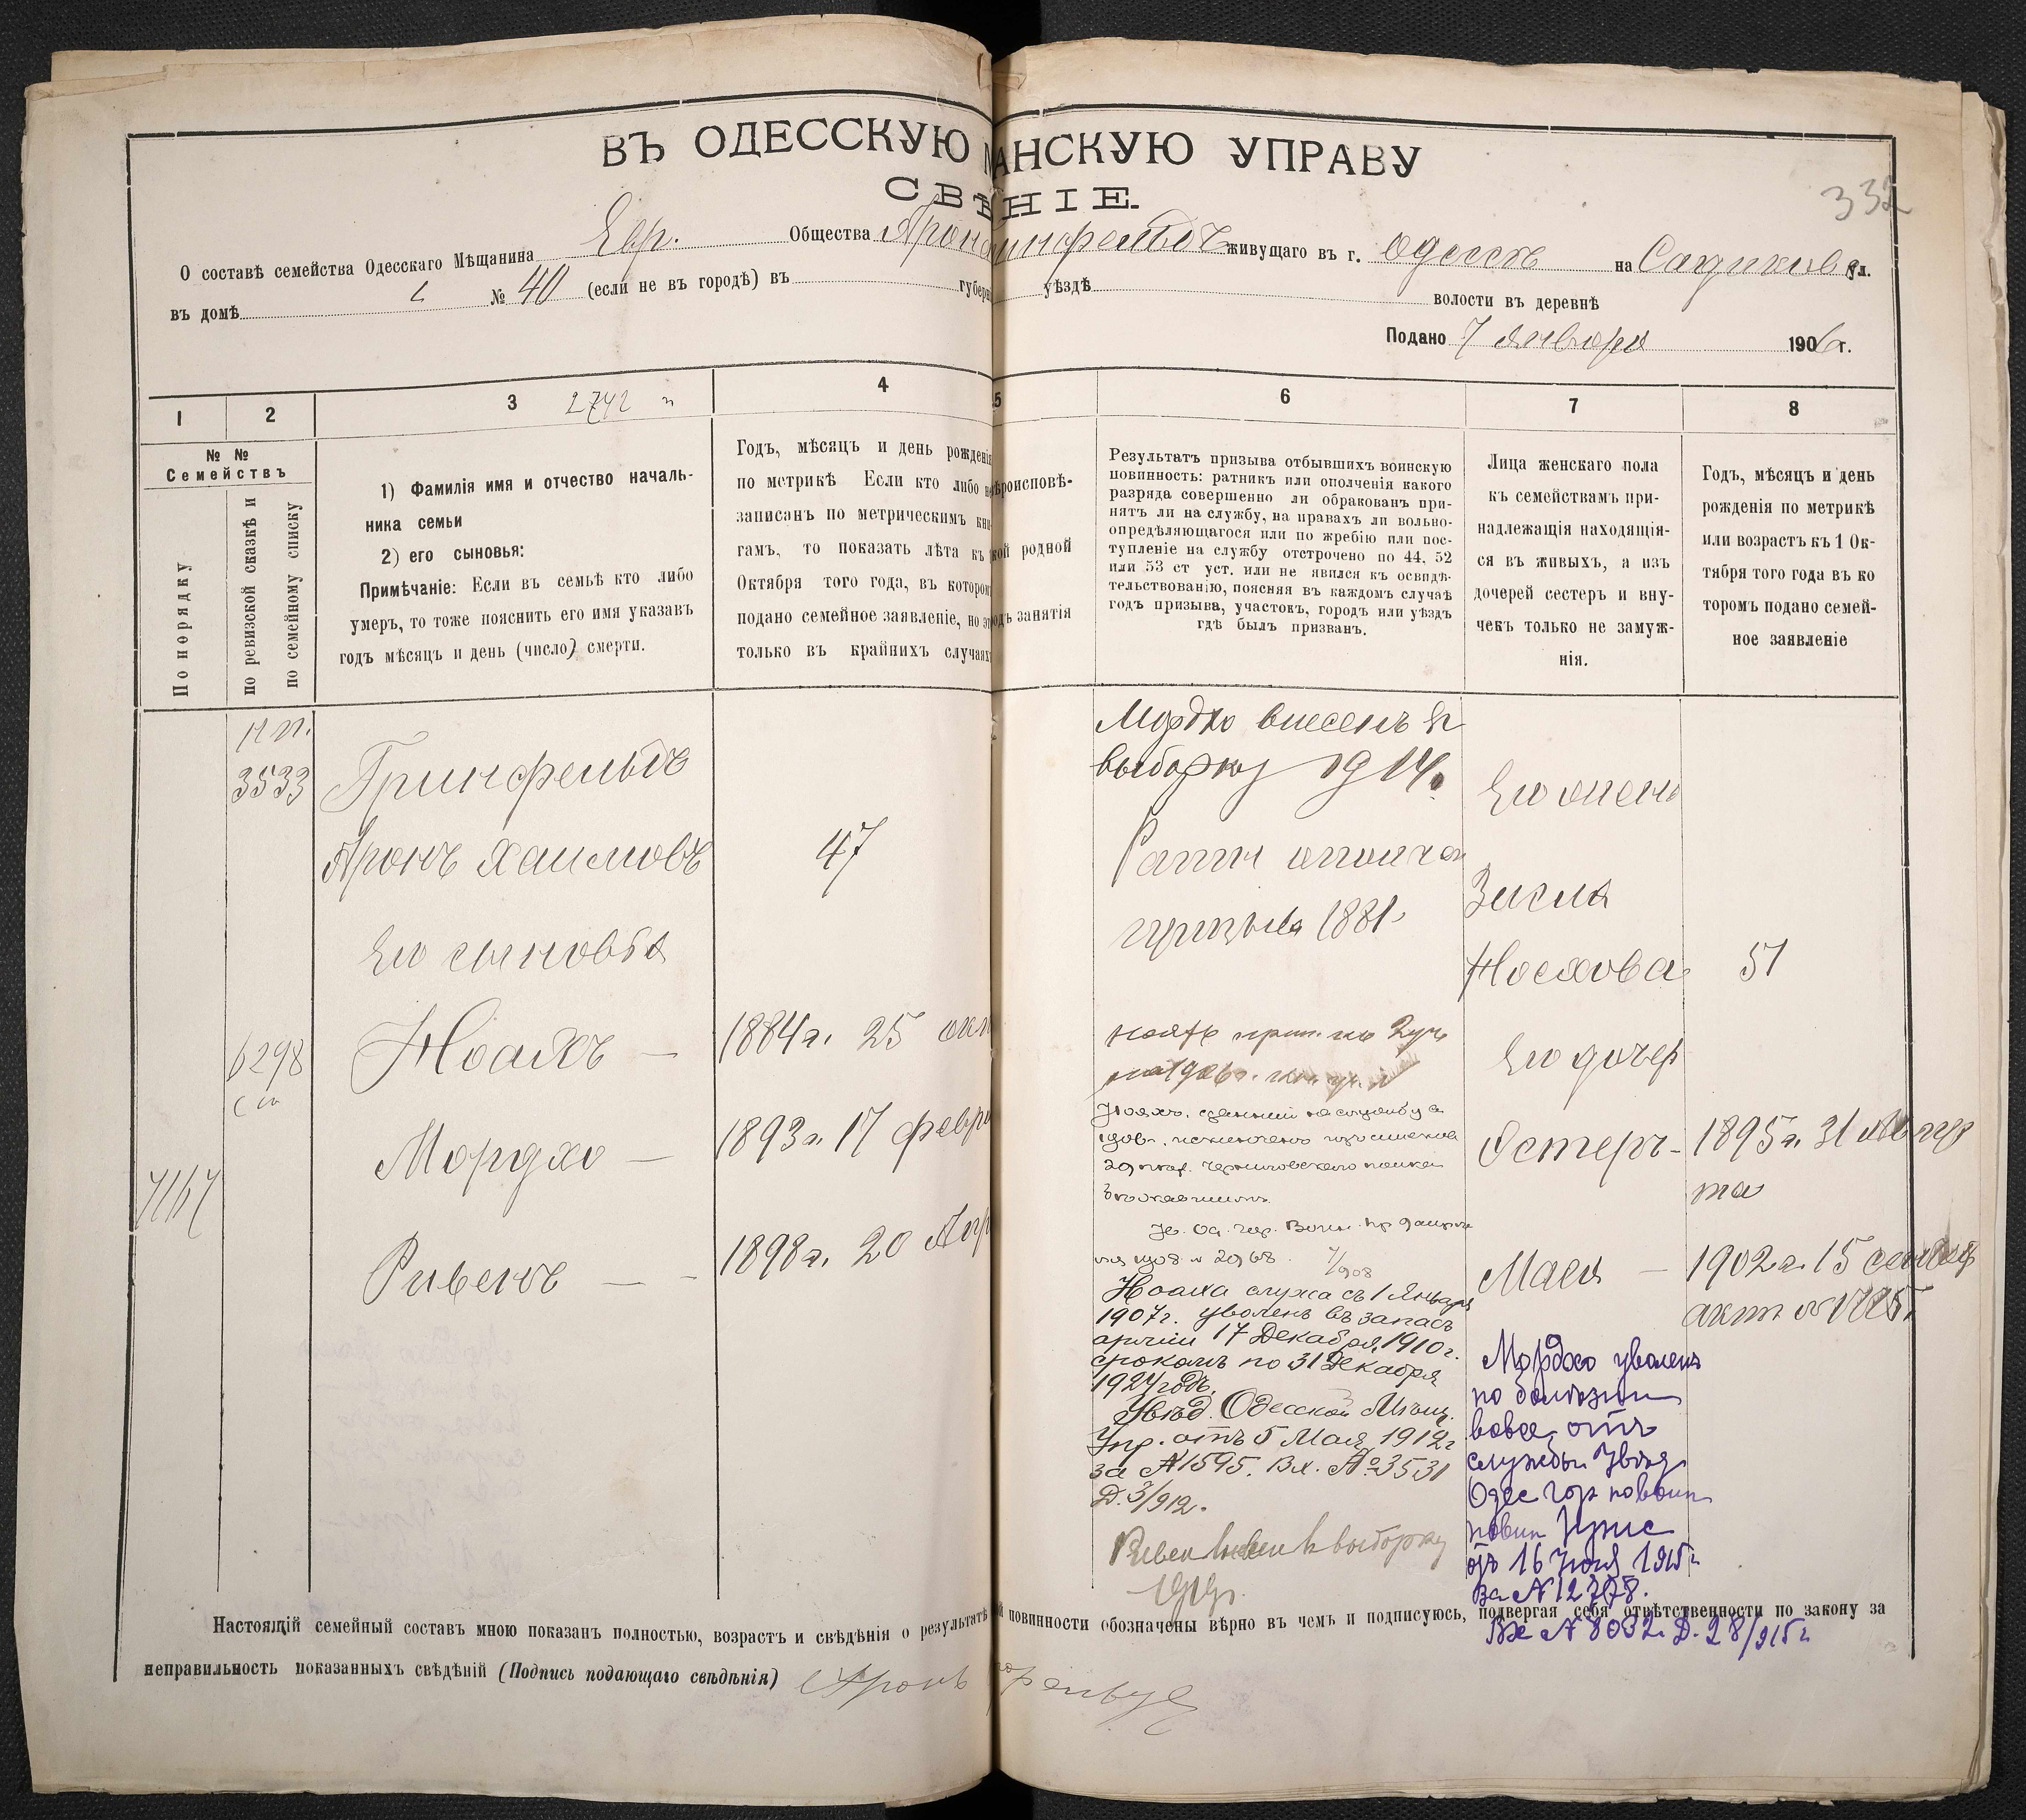 ВЪ ОДЕССКУЮ АНСКУЮ УПРАВУ
СВѢНІЕ.
332
О составѣ семейства Одесскаго Мѣщанина Евр. Общества Арон инфельдъ живущаго въ г. Одессѣ на Садиков ул.
въ домѣ № 40 (если не въ городѣ) въ губерн уѣздѣ волости въ деревнѣ
Подано 7 января 1906 г.
1 2 3 2742 4 5 6 7 8
№ №
Семействъ
По порядку
по ревизской сказкѣ и
по семейному списку
1) Фамилія имя и отчество началь-
ника семьи
2) его сыновья:
Примѣчаніе: Если въ семьѣ кто либо
умеръ, то тоже пояснить его имя указавъ
годъ мѣсяцъ и день (число) смерти.
Годъ, мѣсяцъ и день рожденія
по метрикѣ Если кто либо не
записанъ по метрическимъ кни
гамъ, то показать лѣта къ
Октября того года, въ котором
подано семейное заявленіе, но эт
только въ крайнихъ случаях
ѣроисповѣ-
кой родной
одъ занятія
Результатъ призыва отбывшихъ воинскую
повинность: ратникъ или ополченія какого
разряда совершенно ли обракованъ при-
нятъ ли на службу, на правахъ ли вольно-
опредѣляющагося или по жребію или пос-
тупленіе на службу отстрочено по 44, 52
или 53 ст уст. или не явился къ освидѣ-
тельствованію, поясняя въ каждомъ случаѣ
годъ призыва, участокъ, городъ или уѣздъ
гдѣ былъ призванъ.
Лица женскаго пола
къ семействамъ при-
надлежащія находящія-
ся въ живыхъ, а изъ
дочерей сестеръ и вну-
чекъ только не замуж-
нія.
Годъ, мѣсяцъ и день
рожденія по метрикѣ
или возрастъ къ 1 Ок-
тября того года въ ко
торомъ подано семей-
ное заявленіе
3533
Гринфельдъ
Аронъ Хаимовъ
47
Его сыновья
6298
Ноахъ — 1884 г. 25 окт
Мордхо — 1893 г. 17 февра
7167
Ривенъ — 1898 г. 20 Апр
Мордко внесенъ въ
выборку 1914.
Ратн ополчен
призыва 1881
20 1906 г.
Ноахъ, сданный на службу въ
1906 г., исключенъ изъ списков
29 пѣх. Черниговскаго полка
бѣжавшимъ.
7/908
Ноаха служба съ 1 Января
1907 г. уволенъ въ запасъ
арміи 17 Декабря 1910 г.
срокомъ по 31 Декабря
1924 годъ.
Увѣд. Одесской Мѣщ.
Упр. отъ 5 Мая 1912 г
за № 1595. Вх. № 3531
Д. 3/912.
Ривен внесен в выборку
1919.
Его жена
Зисля
Носхова 51
Его дочер
Эстеръ — 1895 г. 31 авгус
та
Мася — 1902 г. 15 сентяб
акт
Мордхо уволенъ
по болѣзни
вовсе отъ
службы Увѣд
Одес Гор по воин
повин Прис
отъ 16 Июля 1915 г
за № 12778.
Вх № 8032. Д. 28/915 г
Настоящій семейный составъ мною показанъ полностью, возрастъ и свѣдѣнія о результатѣ й повинности обозначены вѣрно въ чемъ и подписуюсь, подвергая себя отвѣтственности по закону за
неправильность показанныхъ свѣдѣній (Подпись подающаго свѣдѣнія) Аронъ